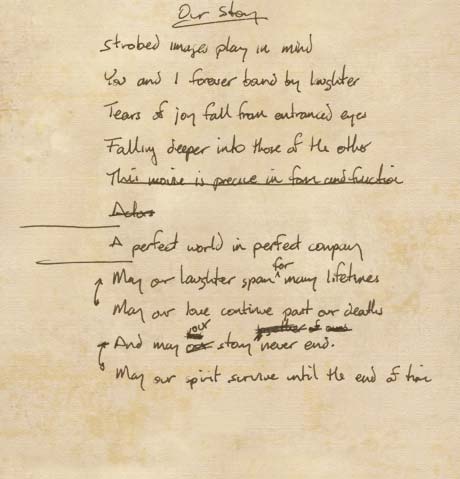 Our Story
Strobed images play in mind
You and I forever bound by laughter
Tears of joy fall from entranced eyes
Falling deeper into those of the other
This movie is precise in form and function
Actors
A perfect world in perfect company
May our laughter span for many lifetimes
May our love continue past our deaths
And may our story never end.
May our spirit survive until the end of time